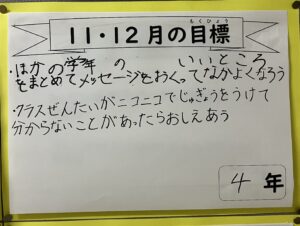 もくひょう
11・12月の目標
・ほかの学年の いいところ
をまとめてメッセージをおくってなかよくなろう
・クラスぜんたいがニコニコでじゅぎょうをうけて
分からないことがあったらおしえあう
4年